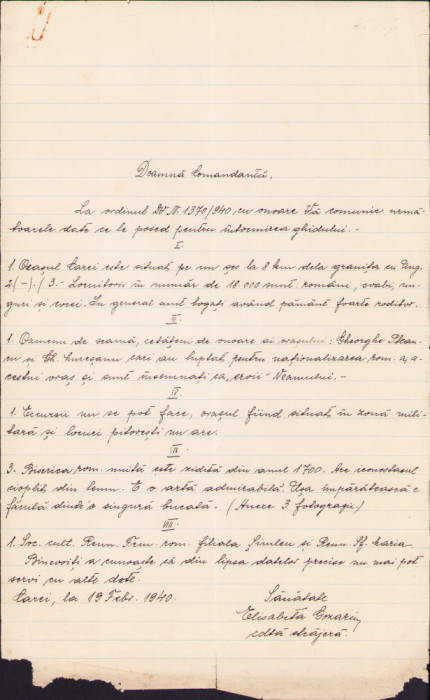 Doamnă Comandantă,
La ordinul Dv. N. 1370/940, cu onoare Vă comunic urmă-
toarele date ce le posed pentru întocmirea ghidului. -
I
1. Orașul Carei este situat pe un șes la 8 km dela granița cu Ung.
2 (-). / 3. - Locuitorii în număr de 18.000 sunt: români, svabi, un-
guri și evrei. În general sunt bogați având pământ foarte roditor.
II
1. Oameni de seamă, cetățeni de onoare ai orașului: Gheorghe
și Gh. Mureșanu cari au luptat pentru naționalizarea rom. a a-
cestui oraș și sunt însemnați ca eroii Neamului. -
IV
1. Excursii nu se pot face, orașul fiind situat în zonă mili-
tară și locuri pitorești nu are.
VII
3. Biserica rom. unită este zidită din anul 1700. Are iconostasul
cioplit din lemn. E o artă admirabilă. Ușa împărătească e
făcută dintr'o singură bucată. (Anexe 3 fotografii)
VIII
1. Soc. cult. Reun. Fem. rom. filiala Șimleu și Reun. Sf. Maria.
Binevoiți a cunoaște că din lipsa datelor precise nu mai pot
servi cu alte date.
Carei, la 19 Febr. 1940.
Sănătate
Elisabeta
cdtă străjeră.